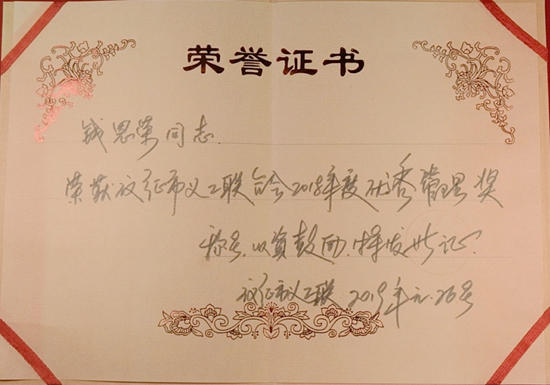 荣誉证书
钱思荣同志.
荣获仪征市义工联合会2018年度优秀管理奖
称号,以资鼓励,特发此证.
仪征市义工联 2019年元.26号